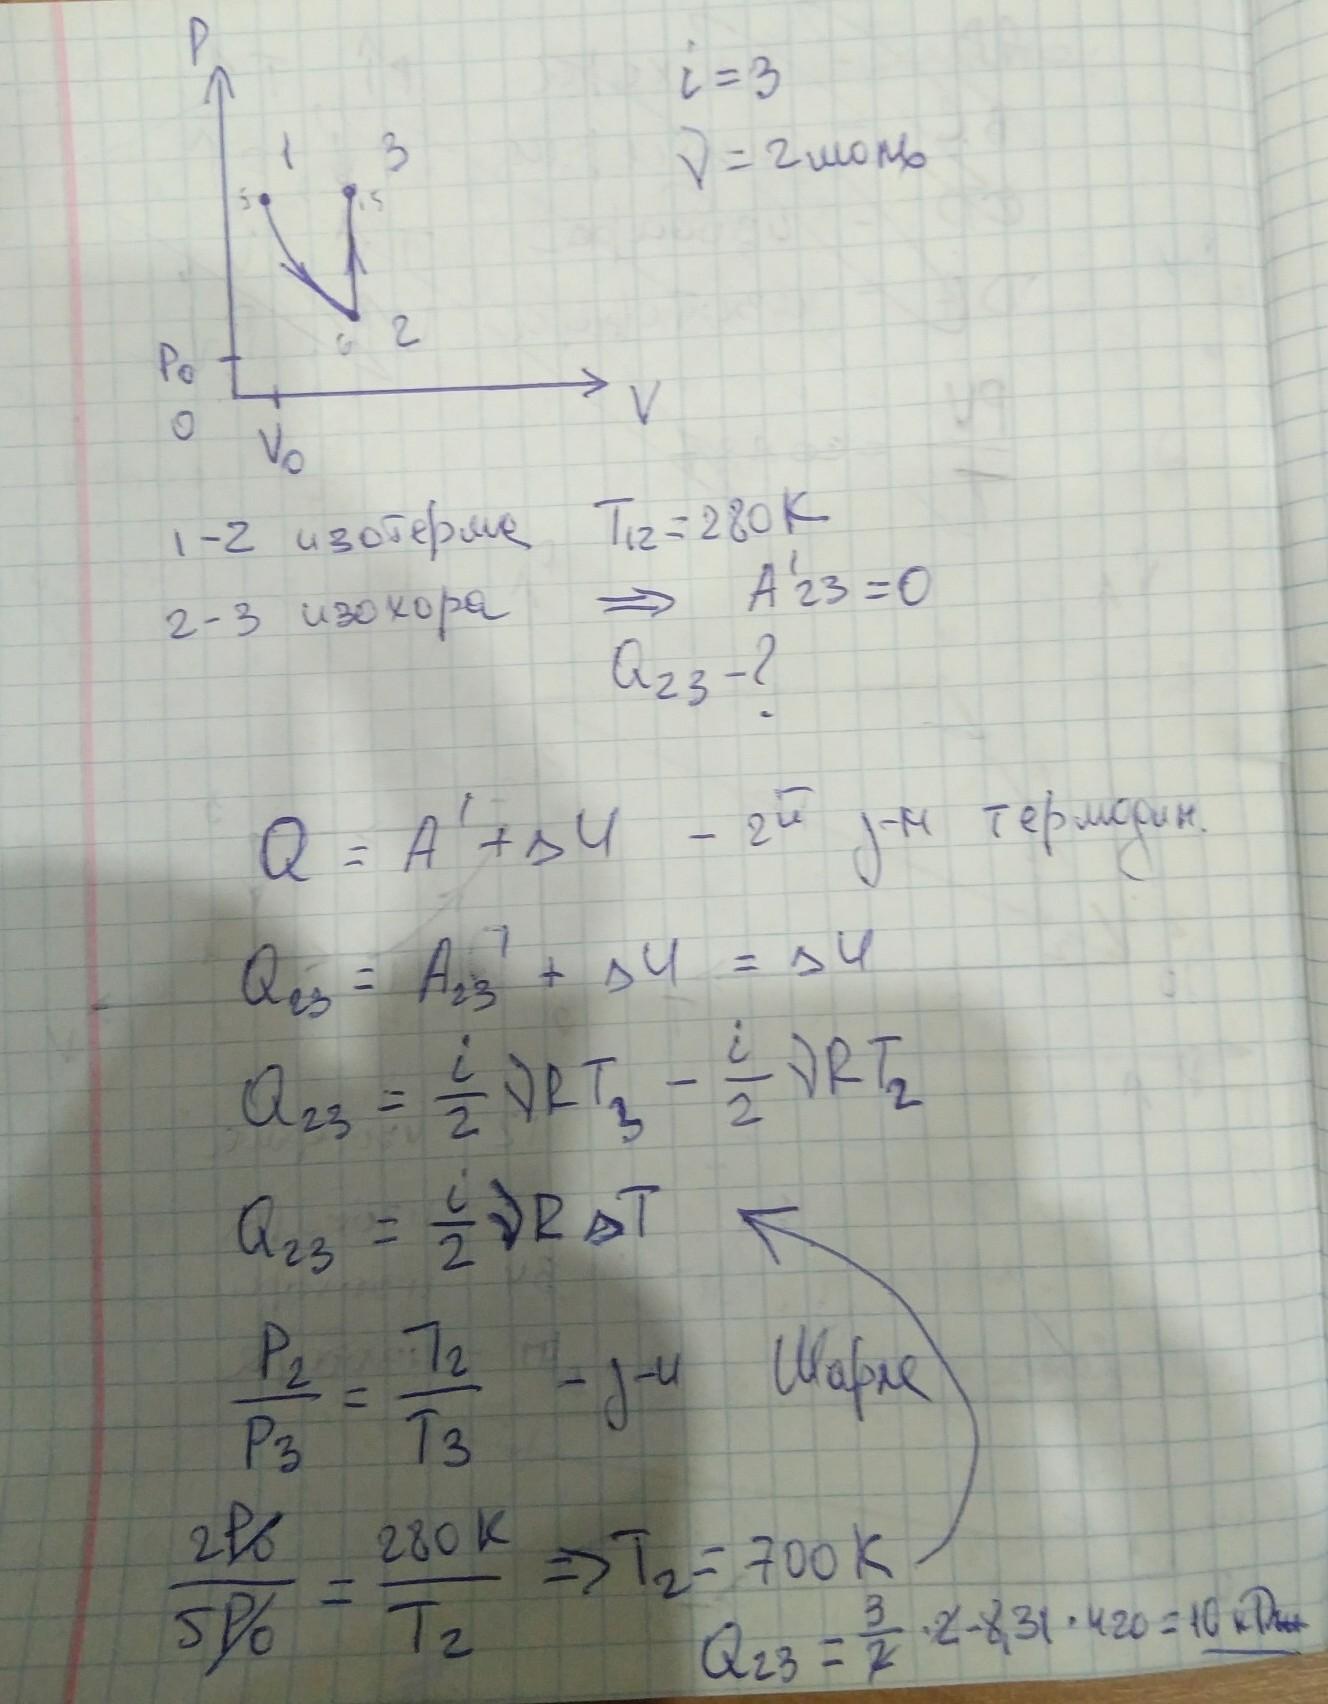 P
i = 3
1 3
ν = 2 моль
5 1,5
2
P₀
0 V
V₀
1-2 изотерма T₁₂ = 280 K
2-3 изохора ⇒ A'₂₃ = 0
Q₂₃ - ?
Q = A' + ΔU - 2й з-н термодин.
Q₂₃ = A₂₃' + ΔU = ΔU
Q₂₃ = i/2 νRT₃ - i/2 νRT₂
Q₂₃ = i/2 νRΔT
P₂/P₃ = T₂/T₃ - з-н Шарля
2P₀/5P₀ = 280 K/T₂ ⇒ T₂ = 700 K
Q₂₃ = 3/2 · 2 · 8,31 · 420 = 10 кДж